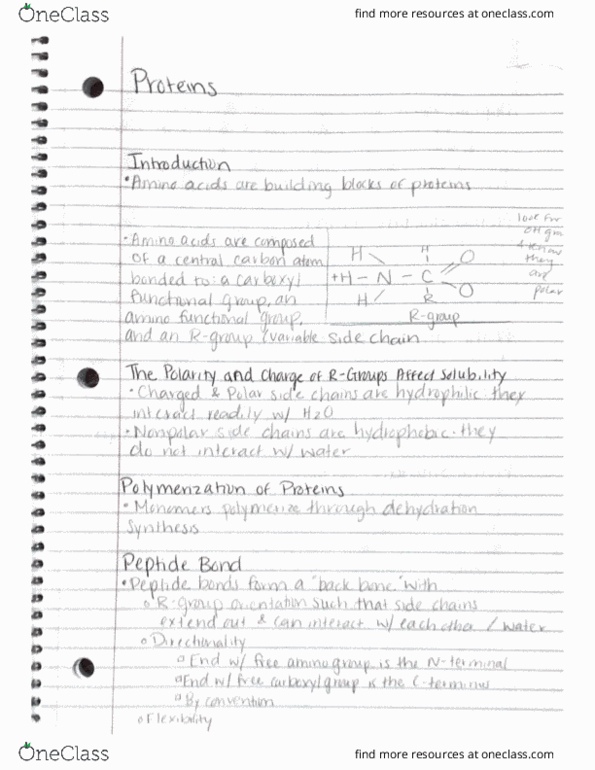 OneClass
find more resources at oneclass.com
Proteins
Introduction
• Amino acids are building blocks of proteins
• Amino acids are composed
of a central carbon atom
bonded to: a carboxyl
functional group, an
amino functional group,
and an R-group / variable side chain
look for
OH grp
& know
they
are
polar
H H O
+H - N - C
H R O
R-group
The Polarity and Charge of R-Groups Affect Solubility
• Charged & Polar side chains are hydrophilic. they
interact readily w/ H2O
• Nonpolar side chains are hydrophobic. they
do not interact w/ water
Polymerization of Proteins
• Monomers polymerize through dehydration
synthesis
Peptide Bond
• Peptide bonds form a "back bone" with
o R-group orientation such that side chains
extend out & can interact w/ each other / water
o Directionality
o End w/ free amino group is the N-terminal
o End w/ free carboxyl group is the C-terminus
o By convention
o Flexibility
OneClass
find more resources at oneclass.com